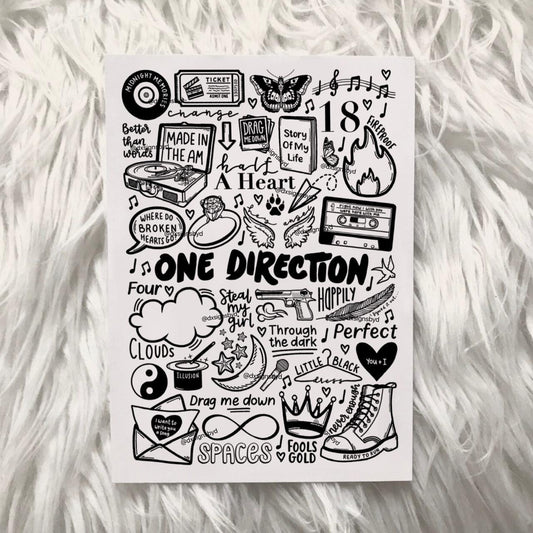 MIDNIGHT MEMORIES
TICKET
ADMIT ONE
change
18
FIREPROOF
Better
than
words
MADE IN
THE AM
DRAG
ME DOWN
Story
Of My
Life
@dxsignsbyd
half
A Heart
@dxsignsbyd
WHERE DO
BROKEN
HEARTS GO?
Right now I wish you
were here with me
ONE DIRECTION
FOUR
@dxsignsbyd
Steal
my
girl
HAPPILY
@dxsignsbyd
Through
the dark
Perfect
CLOUDS
ILLUSION
@dxsignsbyd
LITTLE BLACK
dress
You + I
Drag me down
I want to
write you
a song
@dxsignsbyd
SPACES
FOOLS
GOLD
never enough
@dxsignsbyd
READY TO RUN